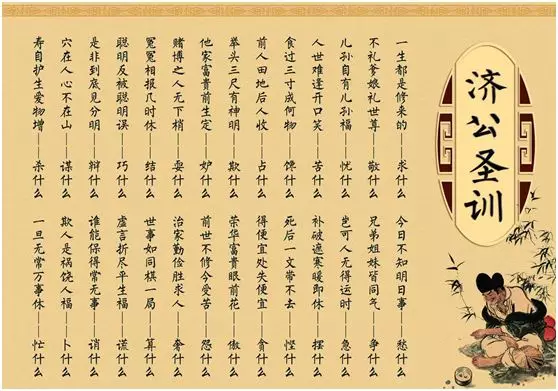 济公圣训
一生都是修来的——求什么
今日不知明日事——愁什么
不礼爹娘礼世尊——敬什么
兄弟姐妹皆同气——争什么
儿孙自有儿孙福——忧什么
岂可人无得运时——急什么
人世难逢开口笑——苦什么
补破遮寒暖即休——摆什么
食过三寸成何物——馋什么
死后一文带不去——悭什么
前人田地后人收——占什么
得便宜处失便宜——贪什么
举头三尺有神明——欺什么
荣华富贵眼前花——傲什么
他家富贵前生定——妒什么
前世不修今受苦——怨什么
赌博之人无下梢——耍什么
治家勤俭胜求人——奢什么
冤冤相报几时休——结什么
世事如同棋一局——算什么
聪明反被聪明误——巧什么
虚言折尽平生福——谎什么
是非到底见分明——辩什么
谁能保得常无事——诮什么
穴在人心不在山——谋什么
欺人是祸饶人福——卜什么
寿自护生爱物增——杀什么
一旦无常万事休——忙什么